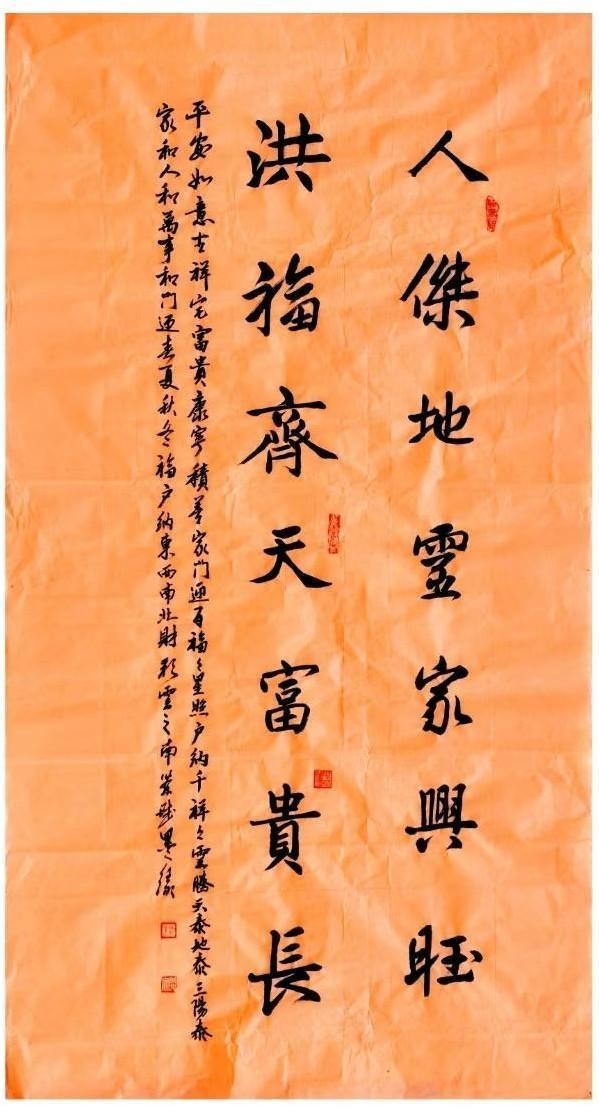 人傑地靈家興旺
洪福齊天富貴長
平安如意吉祥宅富貴康寧積善家門迎百福々星照戶納千祥々雲騰天泰地泰三陽泰
家和人和萬事和門迎春夏秋冬福戶納東西南北財彩雲之南